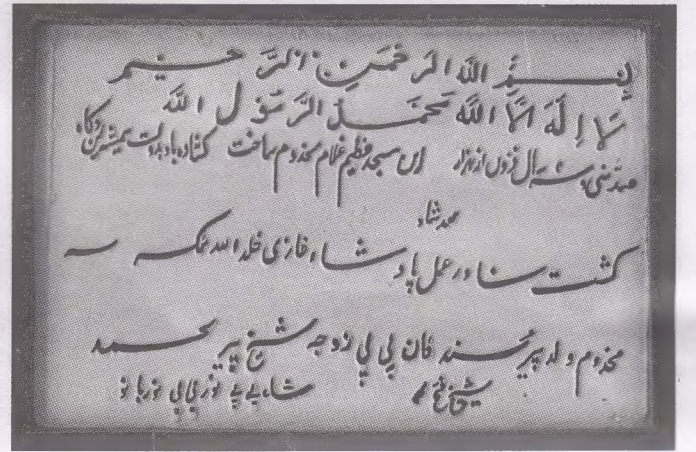 بِسْمِ اللہ الرَّحْمَنِ الرَّحِيْم
لَا اِلٰهَ اِلَّا اللّٰه مُحَمَّدُ الرَّسُوْلُ اللّٰه
صد سی سال فزوں از ہزار ایں مسجد عظیم غلام مخدوم ساخت کشادہ باد بدولت ہمیشہ ایں درگاہ
محمد شاہ
گشت بنا در عمل پادشاہ غازی خلد اللہ ملکہ
مخدوم ولد پیر محمد خان پی پی زوجہ شیخ پیر محمد
شیخ شاہ بی بی نور بی بی نور بانو